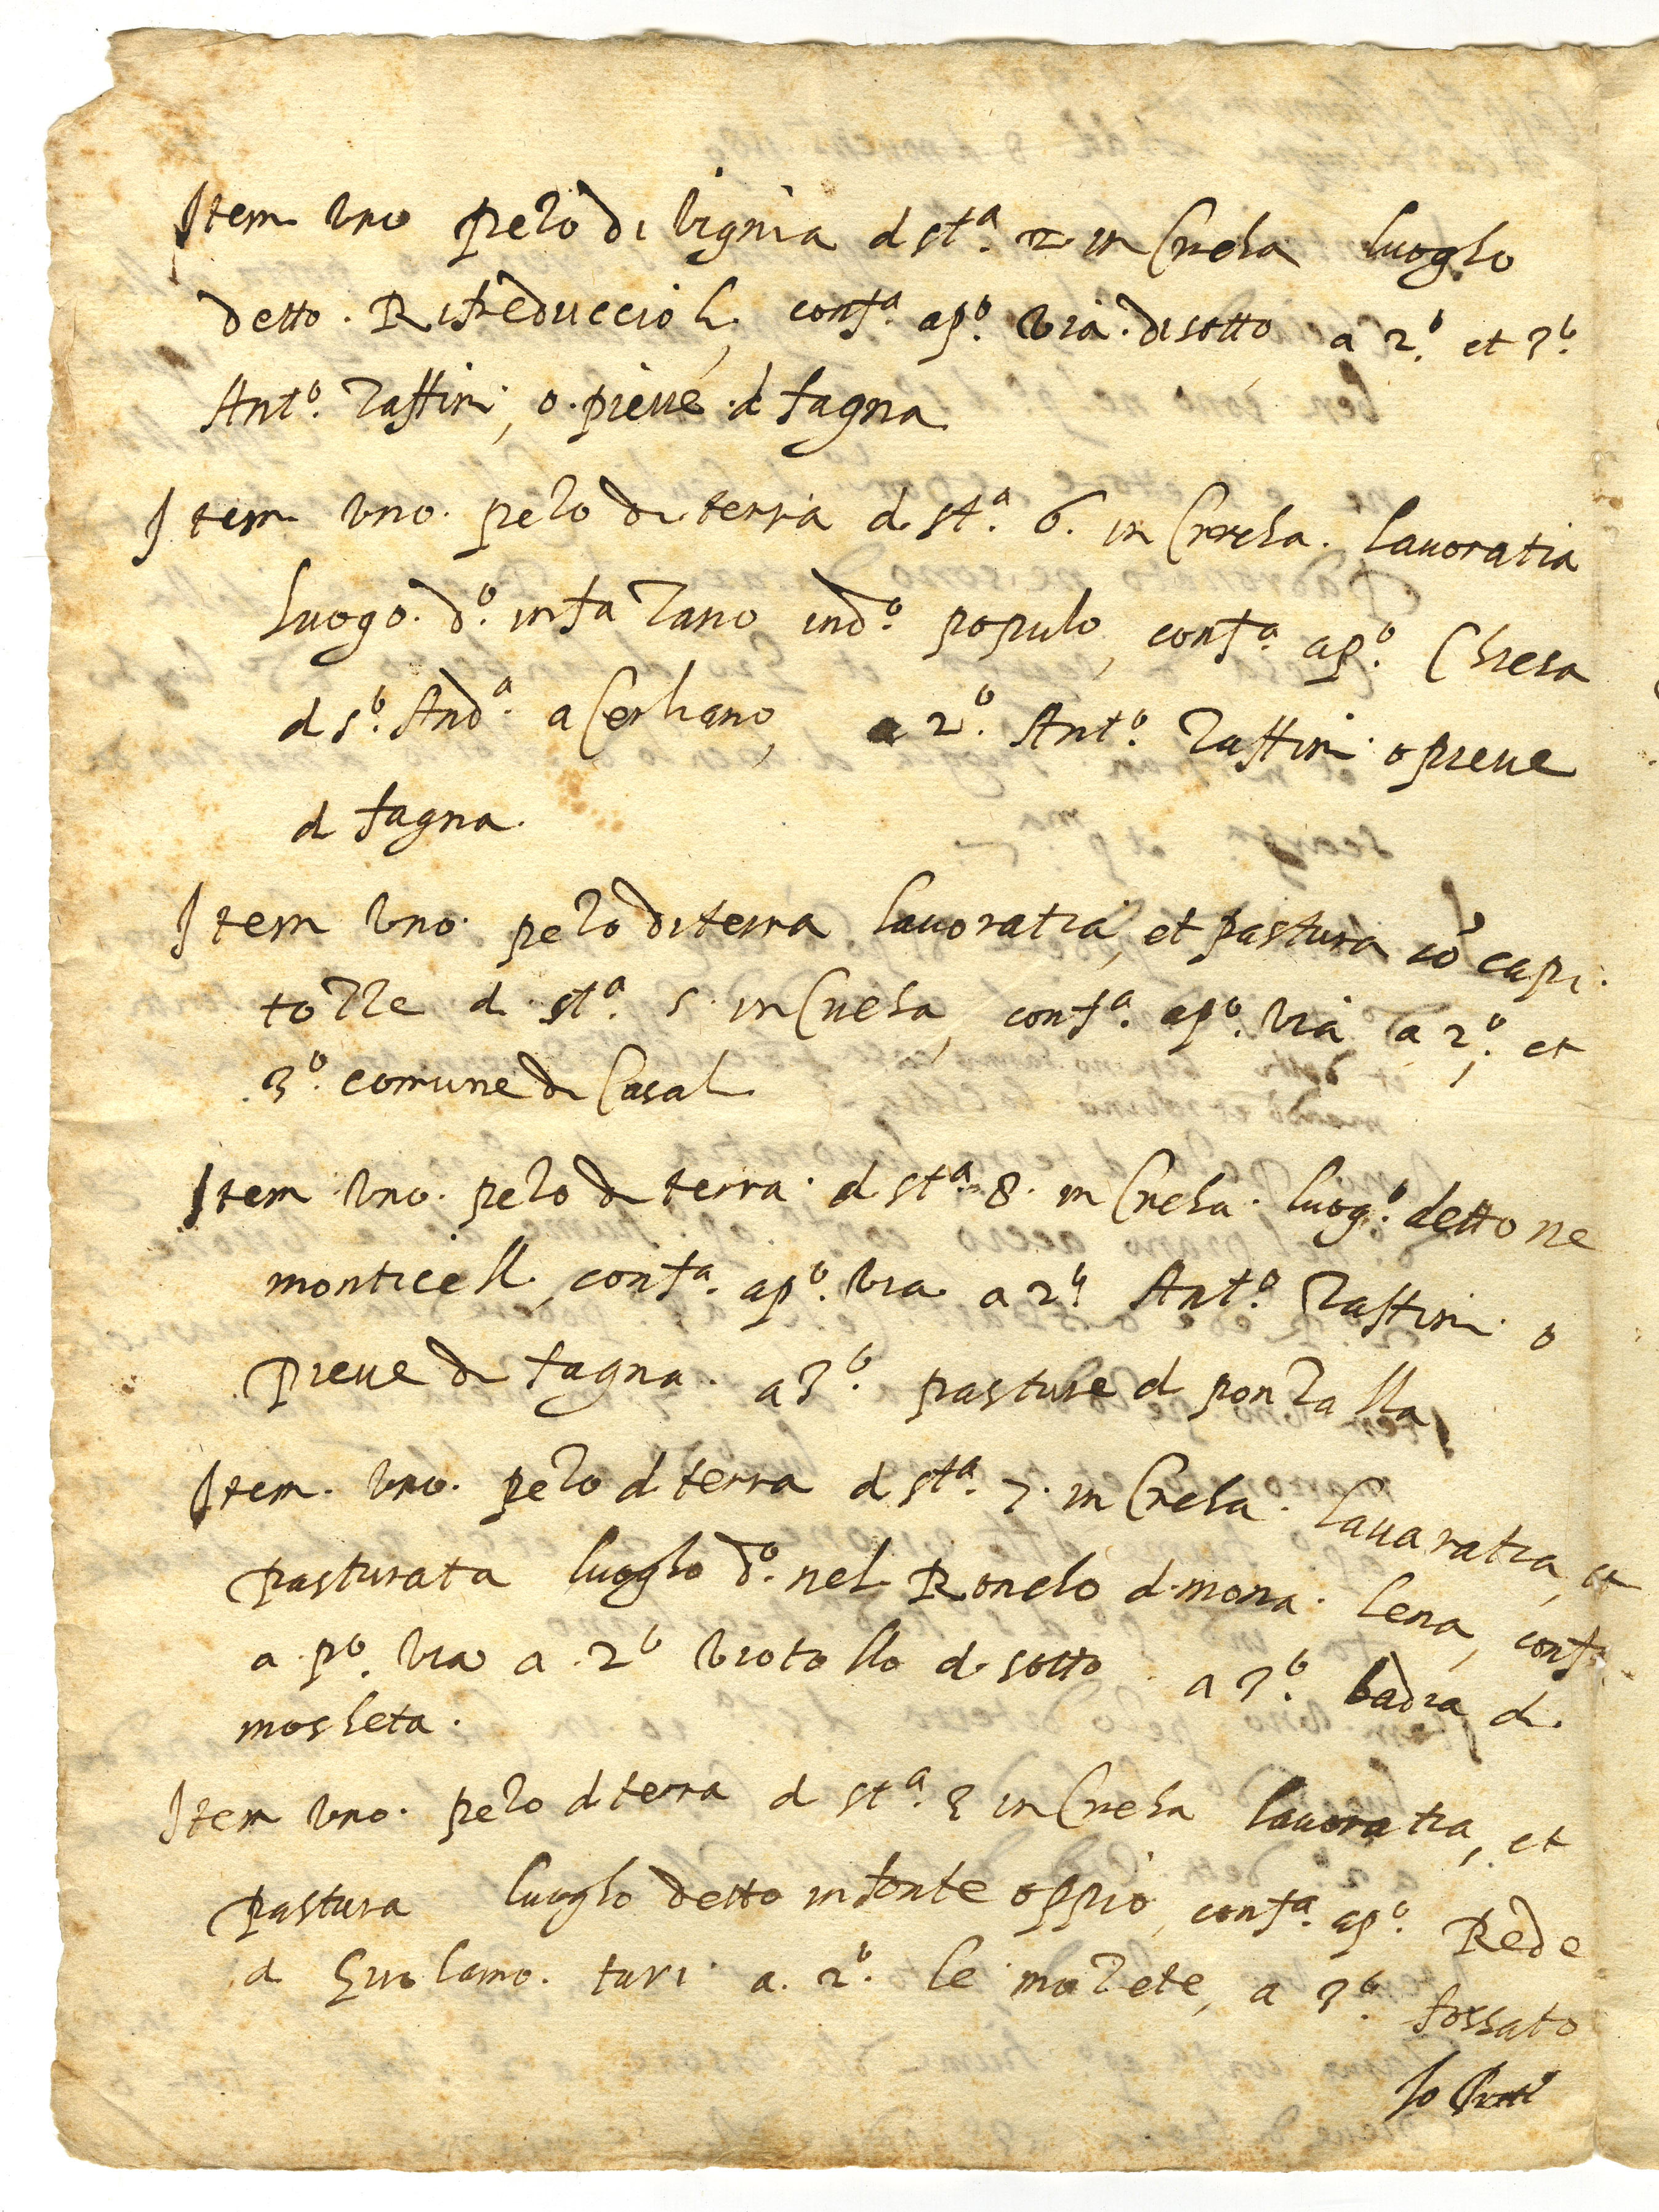 Item uno pezo di vignia d st.ª 2 in Circha luogho
detto. Rifreduccioli, conf.ª a p.º via. di sotto a 2.º et 3.º
Ant.º Zaffiri, o. pieve. d fagna
Item uno. pezo di terra d. st.ª 6. in Circha. lavoratia
luogo. d.º in fazano in d.º populo, conf.ª a p.º Chiesa
d s.º And.ª a Cerliano, a 2.º Ant.º Zaffiri o pieve
d fagna.
Item uno. pezo di terra lavoratia, et pastura cō capi.
tozze d. st.ª 5. in Circha, conf.ª a p.º via a 2.º, et
3.º comune di Casal
Item. uno. pezo di terra. d. st.ª 8. in Circha. luog.º detto ne
monticelli, conf.ª a p.º via a 2.º Ant.º Zaffiri. o
pieve di fagna. a 3.º pasture d ponzalla
Item. uno. pezo d terra d st.ª 7. in Circha. lavaratia, et
pasturata luogho d.º nel Roncho d. mona. lena, conf.ª
a. p.º via a. 2.º d. sotto a 3.º badia d.
moscheta.
Item uno. pezo d. terra d st.ª 3 in Circha lavoratia, et
pastura luogho detto in fonte oppio, conf.ª a p.º Rede
d Girolamo. turi a. 2.º. le mozete, a 3.º fossato
Io